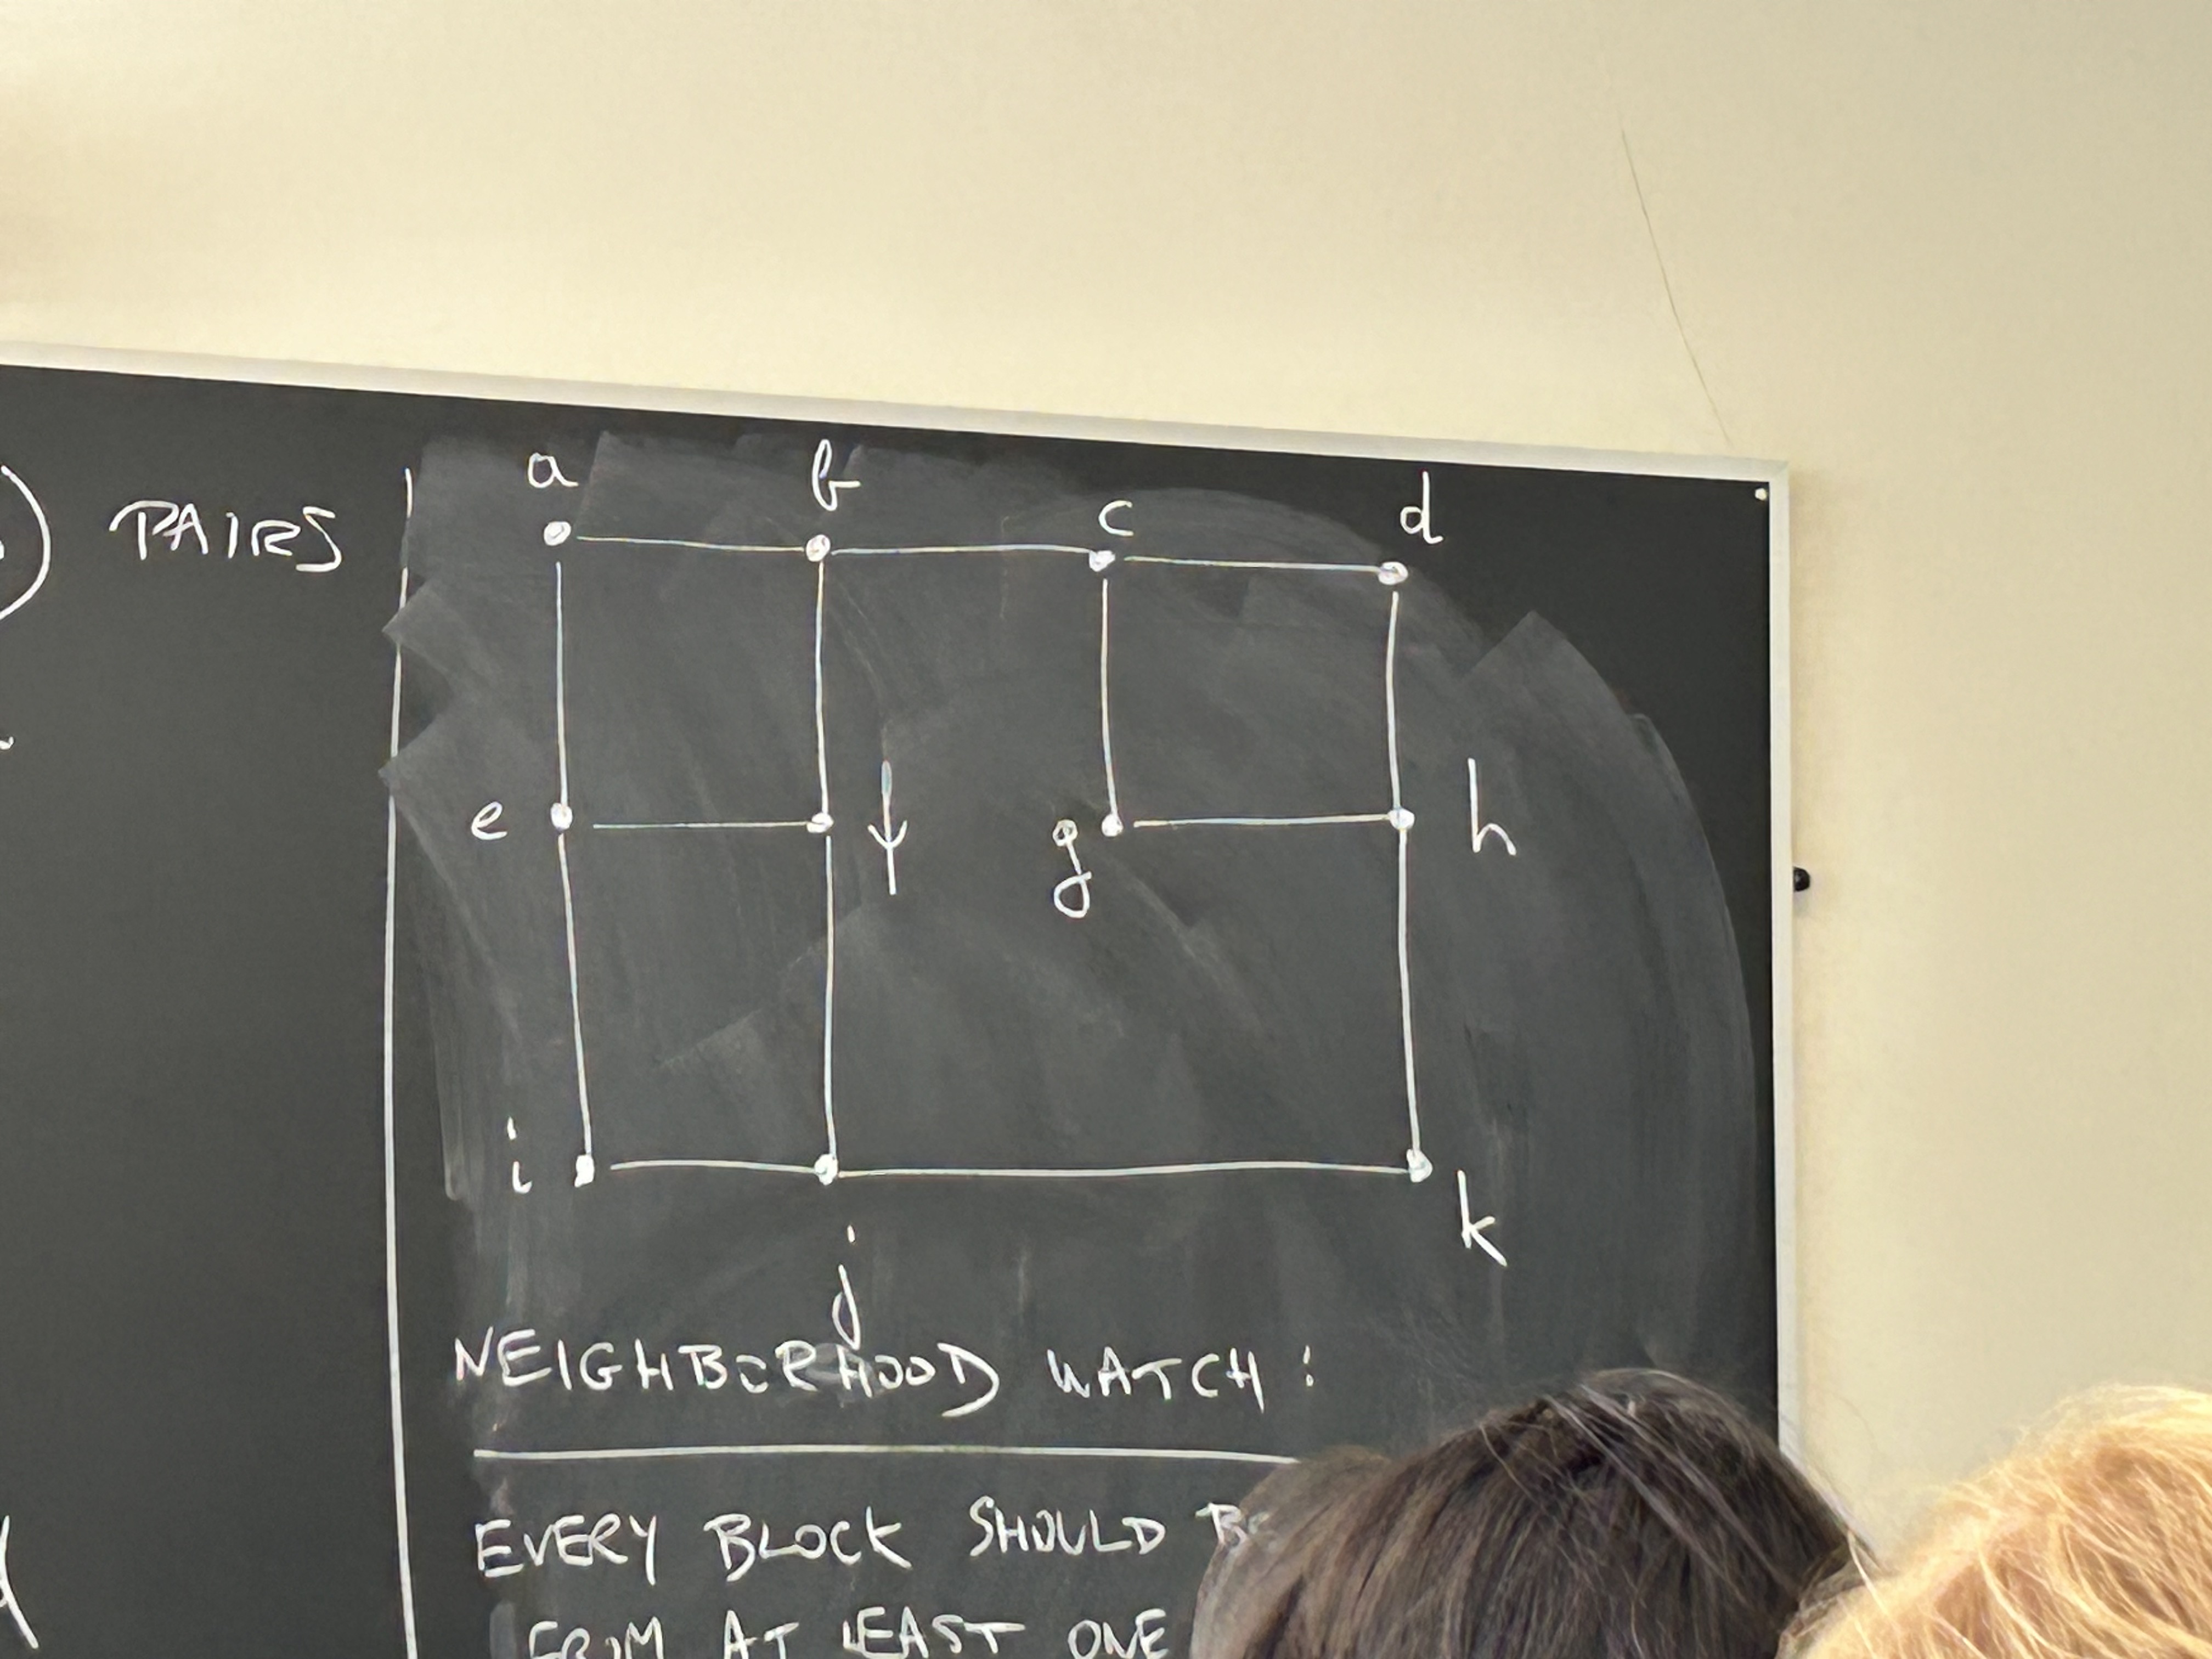 PAIRS
a b c d
e f g h
i j k
NEIGHBORHOOD WATCH:
EVERY BLOCK SHOULD BE
FROM AT LEAST ONE